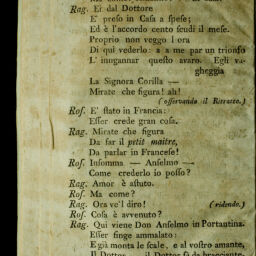 Rag. Ei dal Dottore
E' preso in Casa a spese;
Ed è l'accordo cento scudi il mese.
Proprio non veggo l ora
Di qui vederlo: a a me par un trionfo
L' inngannar questo avaro. Egli va-
gheggia
La Signora Corilla —
Mirate che figura! ah!
(osservando il Ritratto.)
Rof. E' stato in Francia:
Esser crede gran cosa.
Rag. Mirate che figura
Da far il petit maitre,
Da parlar in Francese!
Rof. Insomma — Anselmo —
Come crederlo io posso?
Rag. Amor è astuto.
Rof. Ma come?
Rag. Ora ve'l diro! (ridendo.)
Rof. Cosa è avvenuto?
Rag. Qui viene Don Anselmo in Portantina.
Esser finge ammalato:
E già monta le scale, e al vostro amante,
Il Dottor il Dottor fà da braccante.